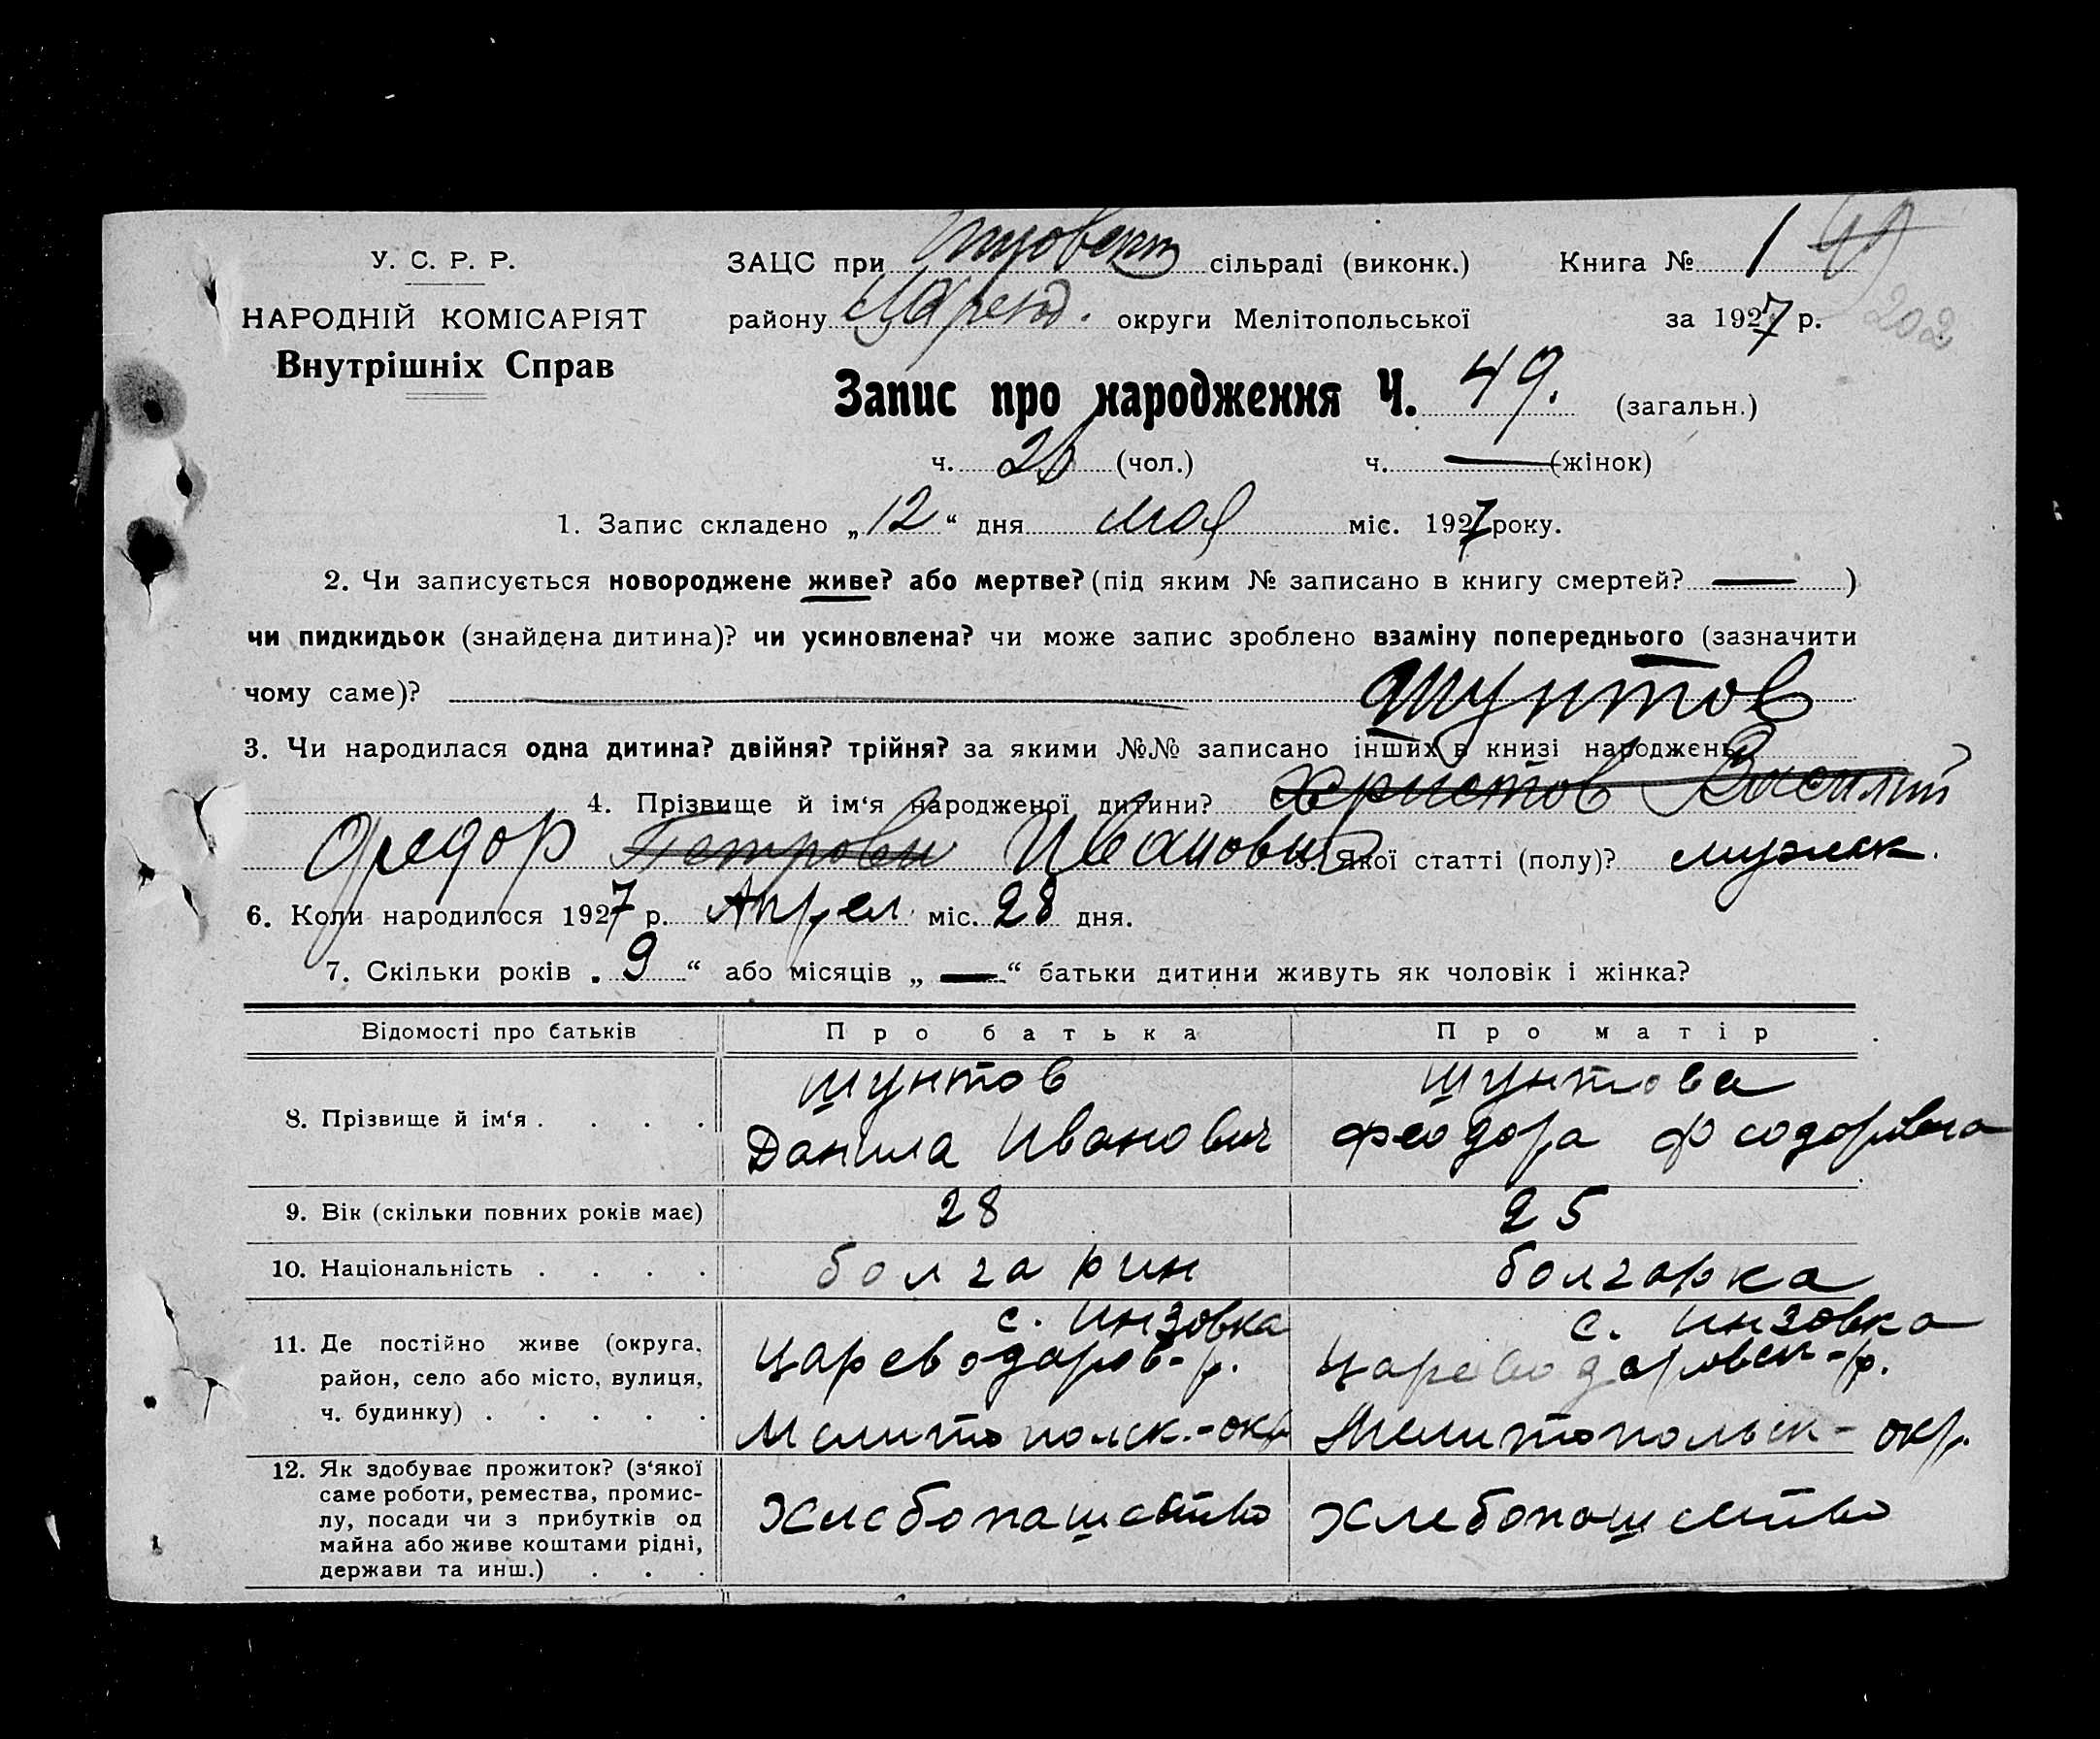 У. С. Р. Р.
НАРОДНІЙ КОМІСАРІЯТ
Внутрішніх Справ
ЗАЦС при сільраді (виконк.) Книга № 1
району Царевод. округи Мелітопольської за 1927 р. 202
Запис про народження Ч. 49. (загальн.)
ч. 26 (чол.) ч. — (жінок)
1. Запис складено „12“ дня мая міс. 1927 року.
2. Чи записується новороджене живе? або мертве? (під яким № записано в книгу смертей? — )
чи пидкидьок (знайдена дитина)? чи усиновлена? чи може запис зроблено взаміну попереднього (зазначити
чому саме)? Шунтов
3. Чи народилася одна дитина? двійня? трійня? за якими №№ записано інших в книзі народжень?
4. Прізвище й ім‘я народженої дитини? Христов Василий
Федор Петрович Иванович 5. Якої статті (полу)? мужск.
6. Коли народилося 1927 р. Апрел міс. 28 дня.
7. Скільки років „9“ або місяців „—“ батьки дитини живуть як чоловік і жінка?
Відомості про батьків Про батька Про матір
8. Прізвище й ім‘я . . . .
Шунтов
Данила Иванович
Шунтова
Феодора Феодоровна
9. Вік (скільки повних років має) 28 25
10. Національність . . . . болгарин болгарка
11. Де постійно живе (округа,
район, село або місто, вулиця,
ч. будинку) . . . . .
с. Инзовка
Цареводаров-р.
Мелитопольск.-окр
с. Инзовка
Цареводаровск-р.
Мелитопольск-окр.
12. Як здобуває прожиток? (з‘якої
саме роботи, ремества, промис-
лу, посади чи з прибутків од
майна або живе коштами рідні,
держави та инш.) . . .
Хлебопашество
Хлебопашество